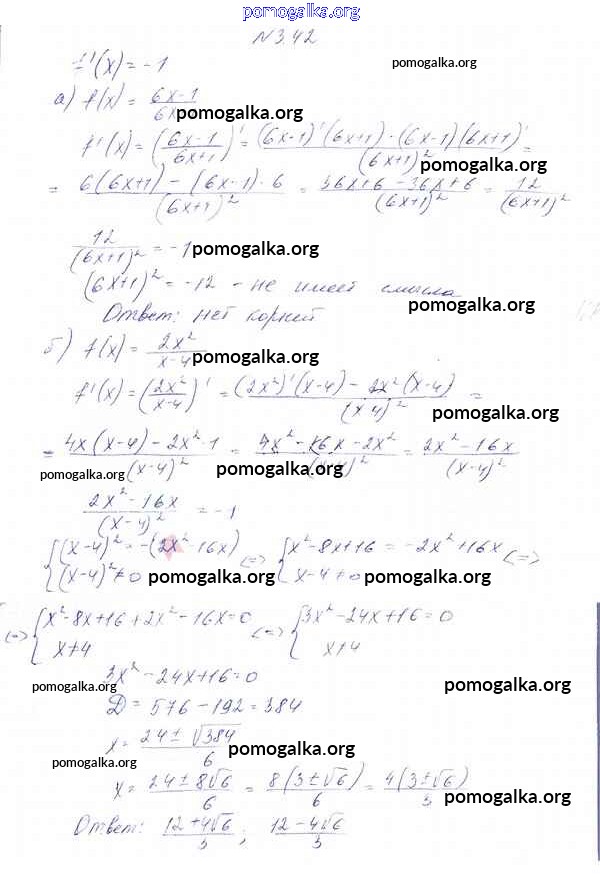 pomogalka.org
N 3.42
f'(x) = -1 pomogalka.org
а) f(x) = (6x-1)/(6x pomogalka.org
f'(x) = ((6x-1)/(6x+1))' = ((6x-1)'(6x+1) - (6x-1)(6x+1)')/(6x+1)² =
pomogalka.org
= (6(6x+1) - (6x-1)·6)/(6x+1)² = (36x+6-36x+6)/(6x+1)² = 12/(6x+1)²
12/(6x+1)² = -1 pomogalka.org
(6x+1)² = -12 - не имеет смысла
pomogalka.org
Ответ: нет корней
б) f(x) = 2x²/(x-4 pomogalka.org
f'(x) = (2x²/(x-4))' = ((2x²)'(x-4) - 2x²(x-4)/(x-4)² =
pomogalka.org
= (4x(x-4) - 2x²·1)/(x-4)² = (4x²-16x-2x²)/(x-4)² = (2x²-16x)/(x-4)²
pomogalka.org pomogalka.org
(2x²-16x)/(x-4)² = -1
{(x-4)² = -(2x²-16x) <=> {x²-8x+16 = -2x²+16x <=>
(x-4)² ≠ 0 pomogalka.org x-4≠0 pomogalka.org
<=> {x²-8x+16+2x²-16x=0 <=> {3x²-24x+16=0
x≠4 x≠4
3x²-24x+16=0
pomogalka.org pomogalka.org
D = 576-192 = 384
x = (24±√384)/6 pomogalka.org
pomogalka.org
x = (24±8√6)/6 = 8(3±√6)/6 = 4(3±√6)/3
pomogalka.org
Ответ: (12+4√6)/3; (12-4√6)/3